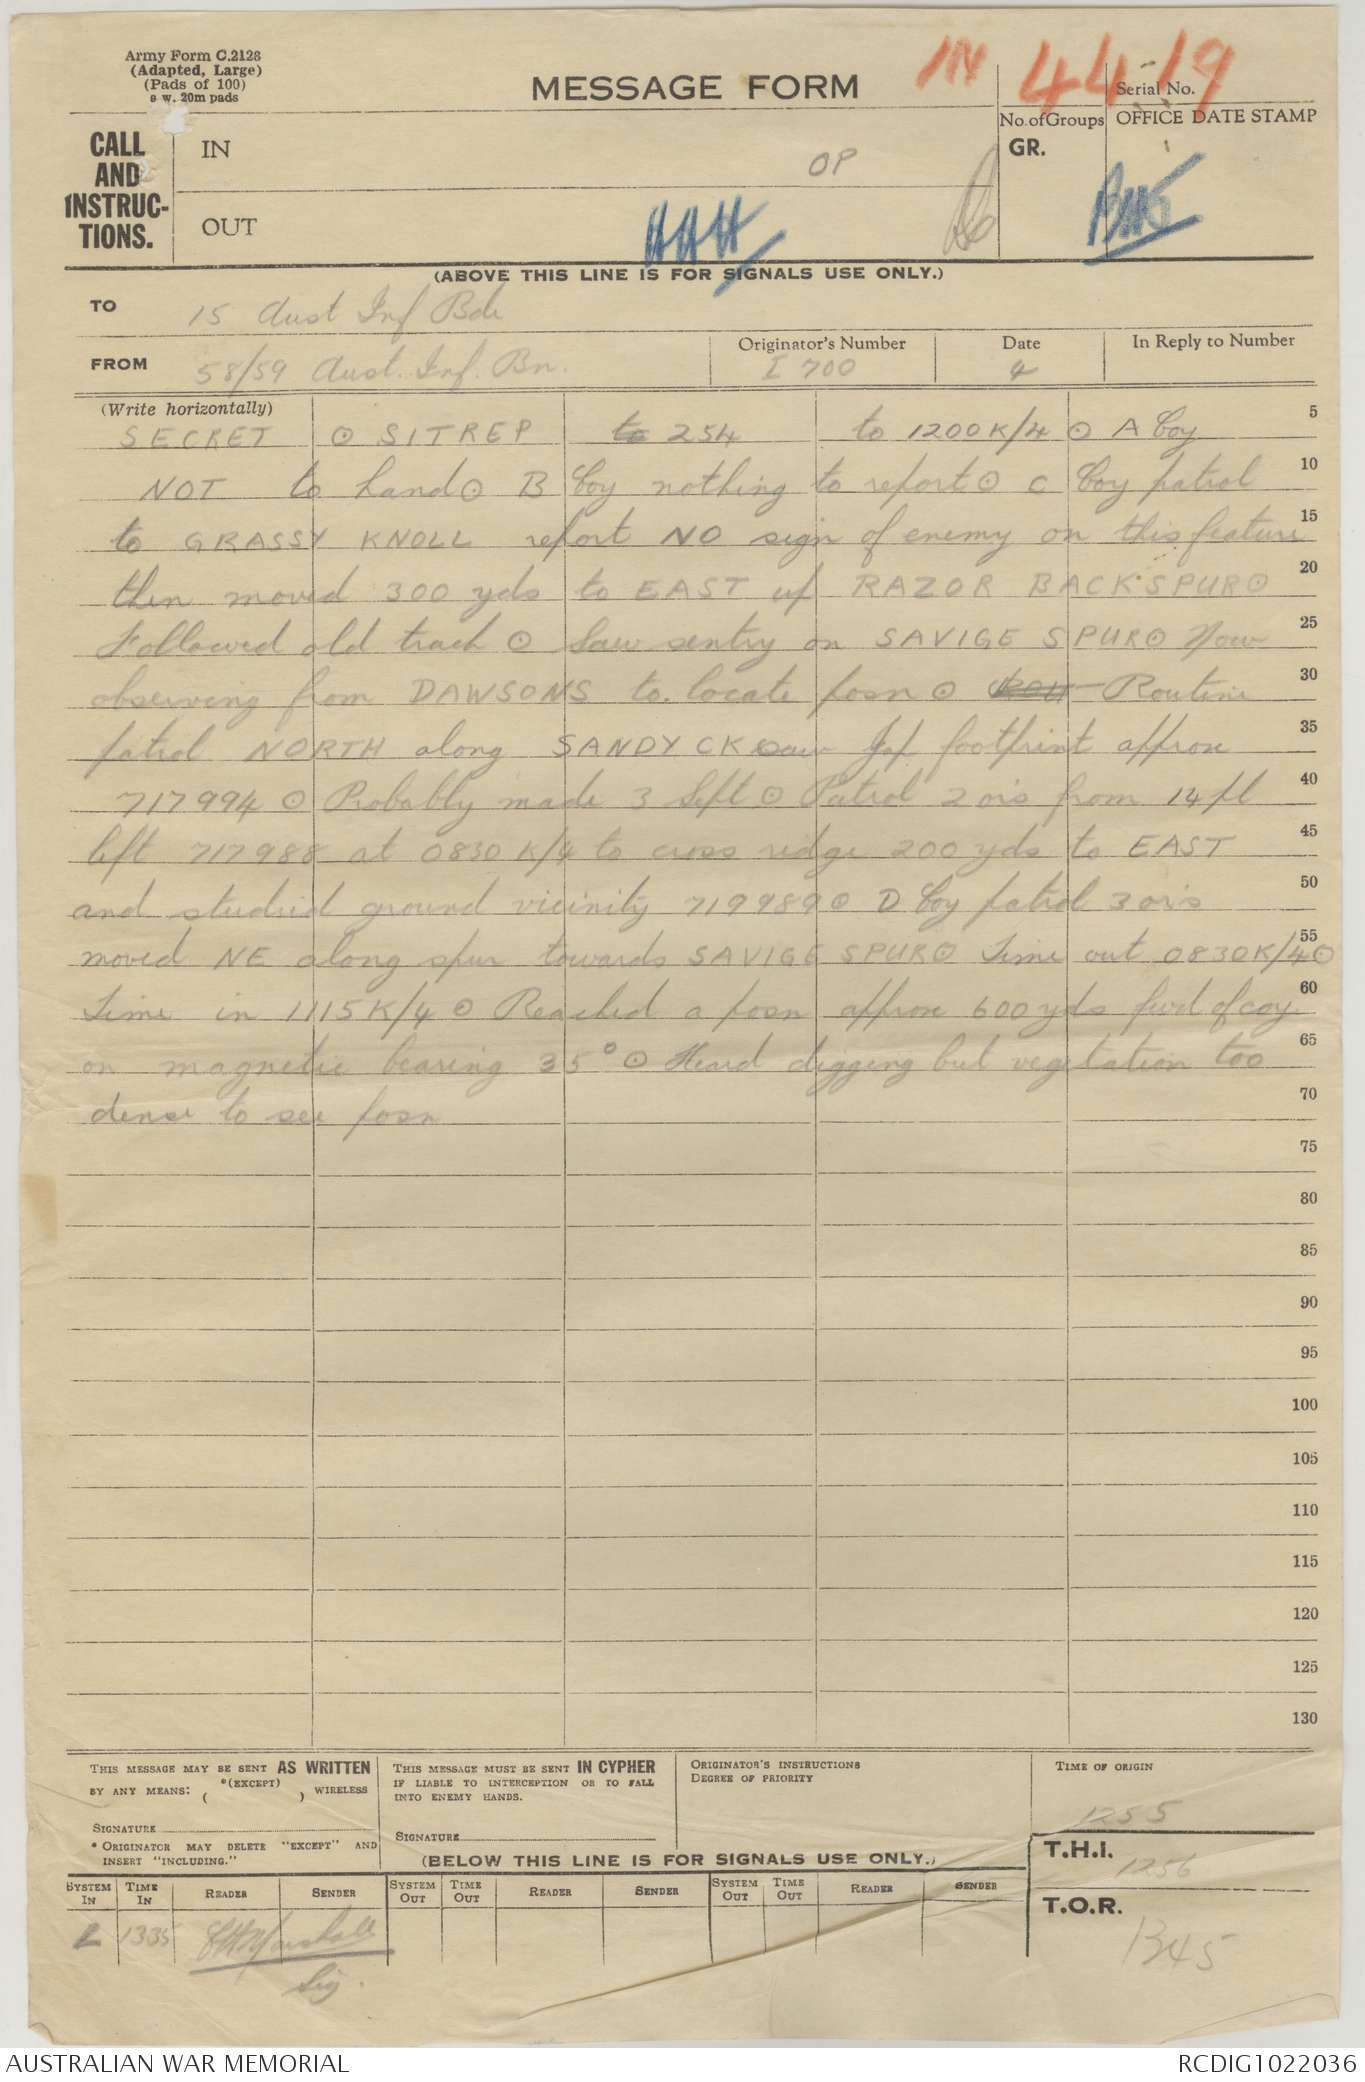 Army Form C.2128
(Adapted, Large)
(Pads of 100)
MESSAGE FORM
IN 4419
Serial No.
No. of Groups
OFFICE DATE STAMP
CALL
AND
INSTRUC-
TIONS.
IN
OP
GR.
OUT
(ABOVE THIS LINE IS FOR SIGNALS USE ONLY.)
TO
15 Aust Inf Bde
FROM
58/59 Aust. Inf. Bn.
Originator's Number
I 700
Date
4
In Reply to Number
(Write horizontally)
SECRET ⊙ SITREP 254 to 1200K/4 ⊙ A Coy
5
NOT to hand ⊙ B Coy nothing to report ⊙ C Coy patrol
10
to GRASSY KNOLL report NO sign of enemy on this feature
15
then moved 300 yds to EAST up RAZOR BACK SPUR ⊙
20
Followed old track ⊙ Saw sentry on SAVIGE SPUR ⊙ Now
25
observing from DAWSONS to locate posn ⊙ Routine
30
patrol NORTH along SANDY CK saw Jap footprint approx
35
717994 ⊙ Probably made 3 Sept ⊙ Patrol 2 ors from 14 pl
40
left 717988 at 0830 K/4 to cross ridge 200 yds to EAST
45
and studied ground vicinity 719989 ⊙ D Coy patrol 3 ors
50
moved NE along spur towards SAVIGE SPUR ⊙ Time out 0830K/4 ⊙
55
Time in 1115K/4 ⊙ Reached a posn approx 600 yds fwd of coy
60
on magnetic bearing 35° ⊙ Heard digging but vegetation too
65
dense to see posn
70
75
80
85
90
95
100
105
110
115
120
125
130
THIS MESSAGE MAY BE SENT AS WRITTEN
BY ANY MEANS: *(EXCEPT) ( ) WIRELESS
SIGNATURE
* ORIGINATOR MAY DELETE "EXCEPT" AND
INSERT "INCLUDING."
THIS MESSAGE MUST BE SENT IN CYPHER
IF LIABLE TO INTERCEPTION OR TO FALL
INTO ENEMY HANDS.
SIGNATURE
ORIGINATOR'S INSTRUCTIONS
DEGREE OF PRIORITY
TIME OF ORIGIN
1255
(BELOW THIS LINE IS FOR SIGNALS USE ONLY.)
T.H.I.
1256
SYSTEM IN
TIME IN
READER
SENDER
SYSTEM OUT
TIME OUT
READER
SENDER
SYSTEM OUT
TIME OUT
READER
SENDER
T.O.R.
1345
L 1335 Marshall
Sig.
AUSTRALIAN WAR MEMORIAL
RCDIG1022036